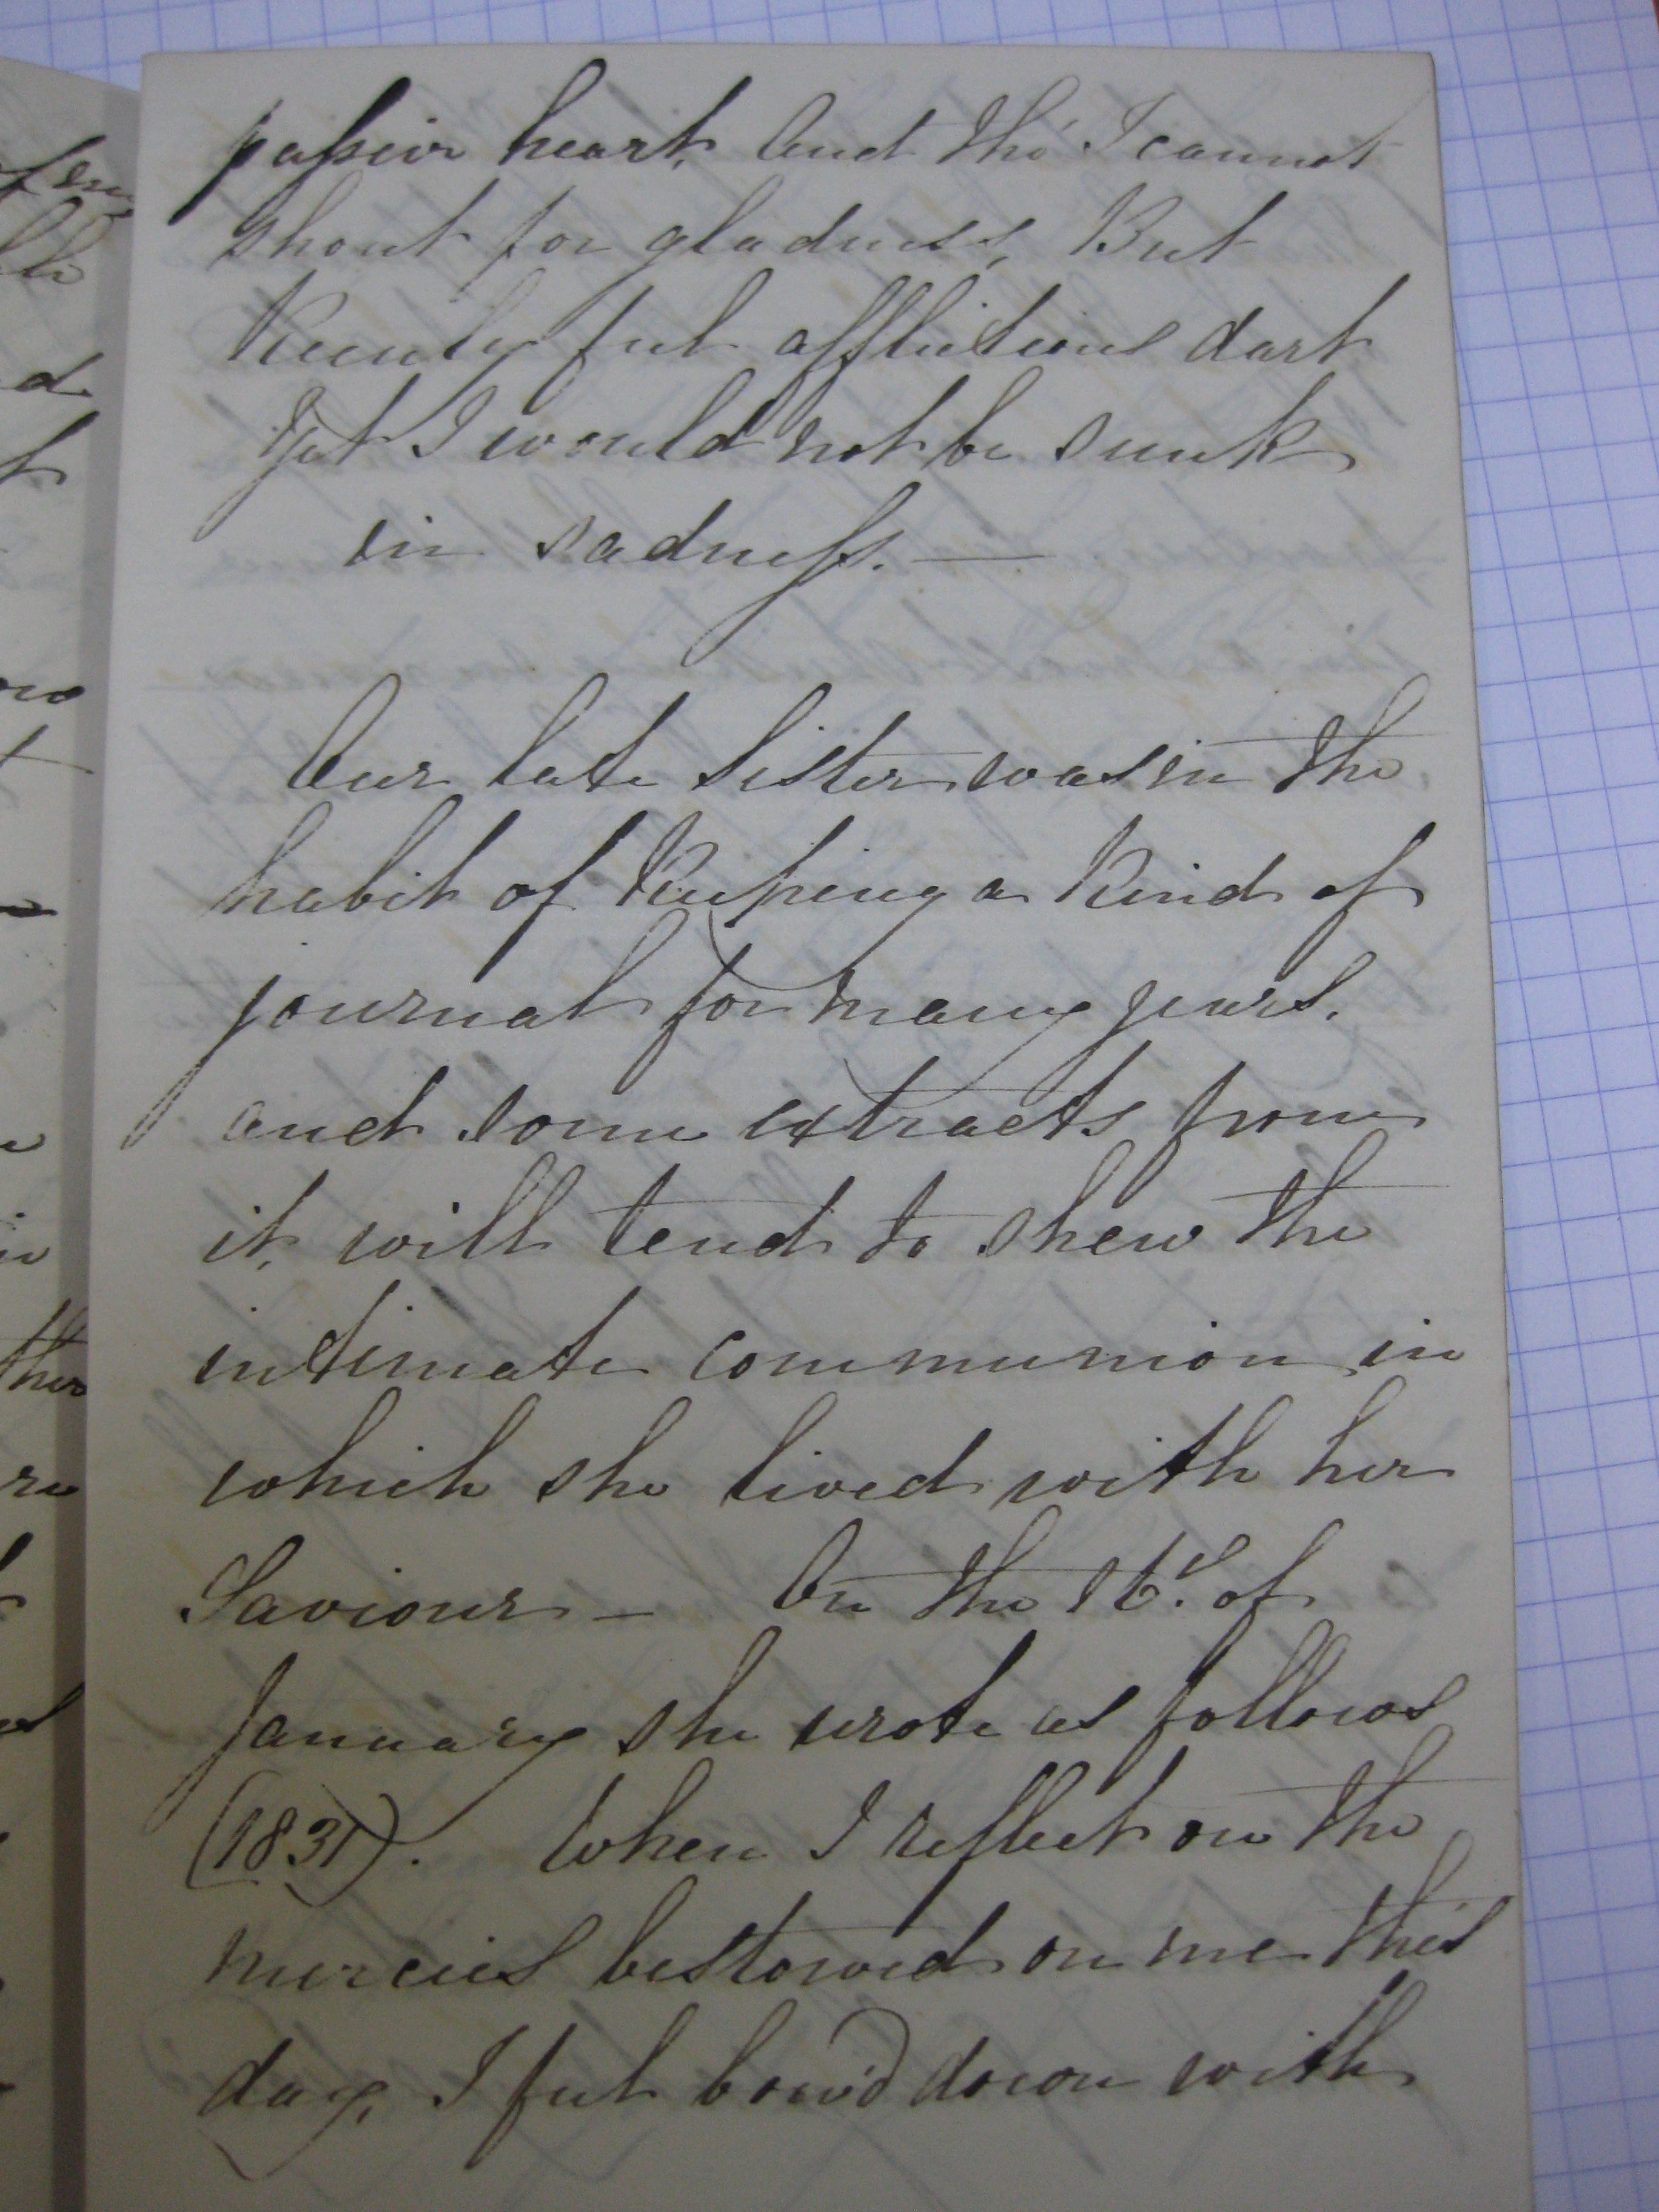 passive heart, And tho' I cannot
shout for gladness, But
Keenly feel afflictions dart
Yet I would not be sunk
in sadness. —
Our late Sister was in the
habit of Keeping a Kind of
journal for many years.
and some extracts from
it, will tend to shew the
intimate communion in
which she lived with her
Saviour — On the 16. of
January she wrote as follows
(1831). When I reflect on the
mercies bestowed on me this
day, I feel bow'd down with